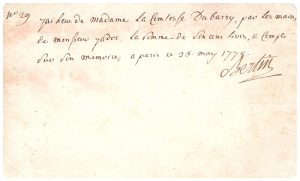 N° 29 j'ai reçu de madame la Comtesse Dubarry, par les mains
de monsieur la somme de livres, a compte
sur son memoire, a paris ce 25. may 1778
Bertin